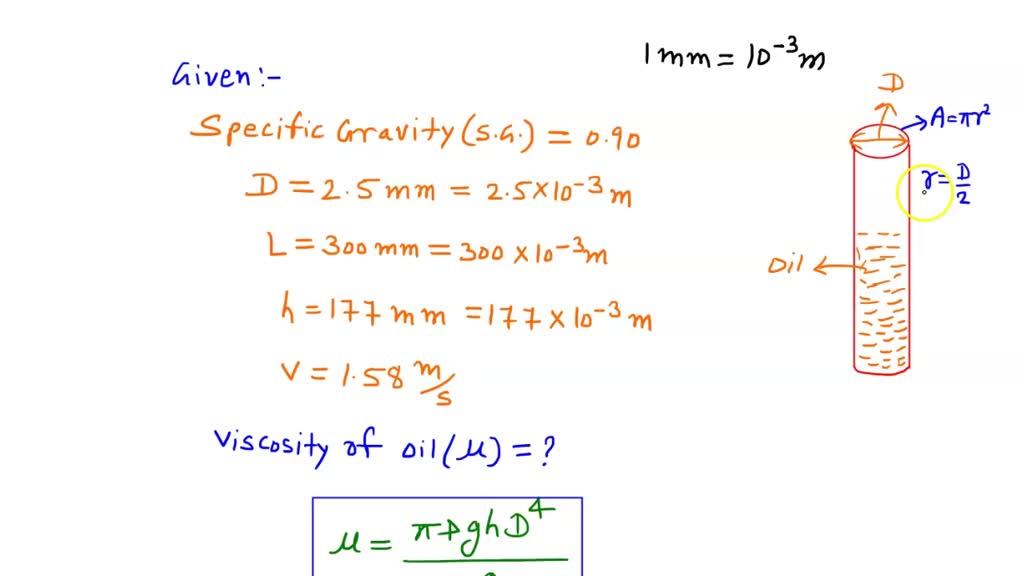 1 mm = 10⁻³ m
Given :-
Specific Gravity (S.G.) = 0.90
D = 2.5 mm = 2.5 × 10⁻³ m
L = 300 mm = 300 × 10⁻³ m
h = 177 mm = 177 × 10⁻³ m
V = 1.58 m/s
Viscosity of oil (μ) = ?
μ = πρghD⁴
D
A = πr²
r = D/2
Oil